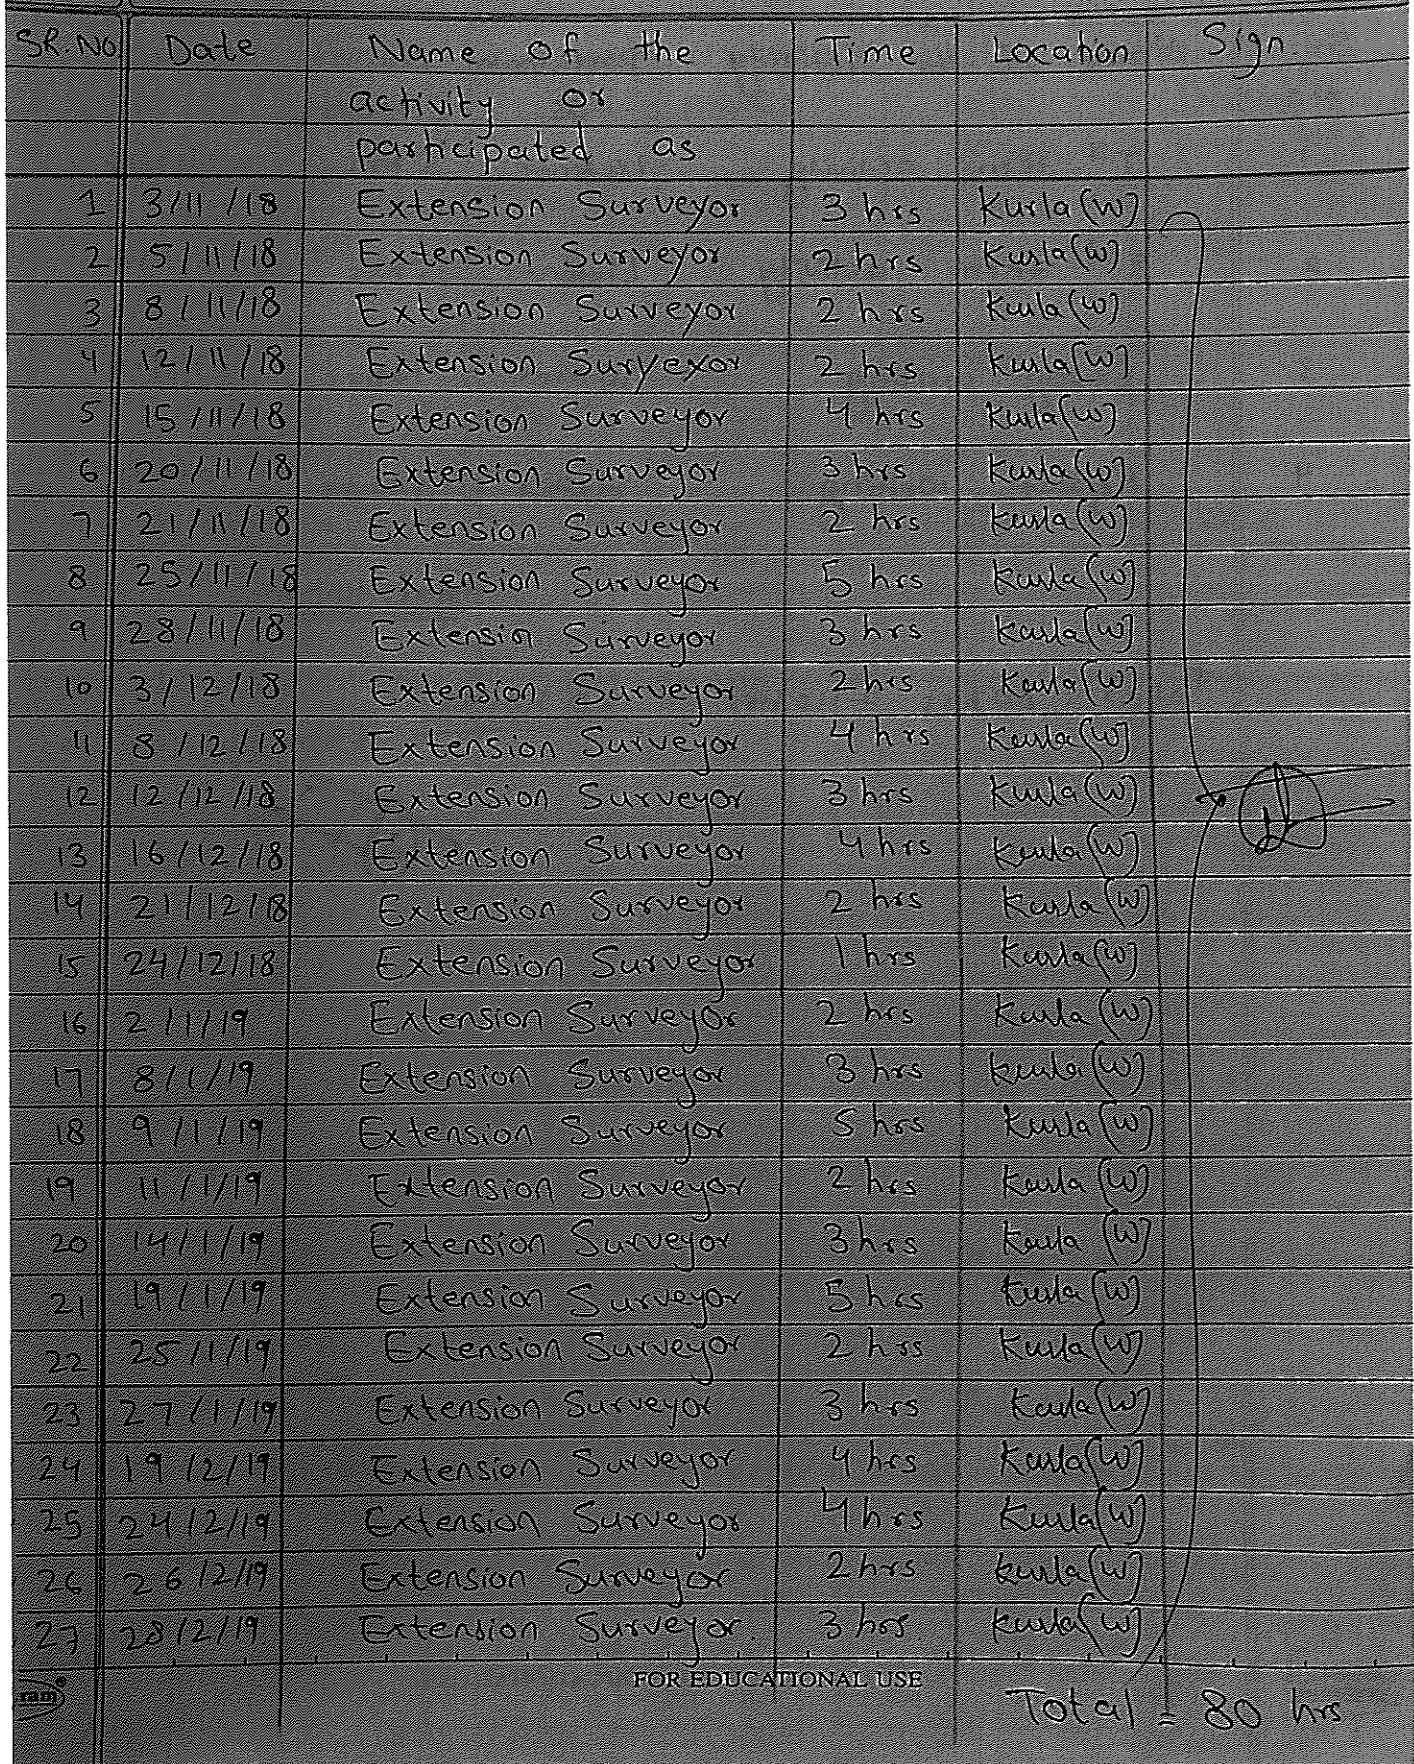 SR. No Date Name of the Time Location Sign
activity or
participated as
1 3/11/18 Extension Surveyor 3 hrs Kurla(W)
2 5/11/18 Extension Surveyor 2 hrs Kurla(W)
3 8/11/18 Extension Surveyor 2 hrs Kurla(W)
4 12/11/18 Extension Surveyor 2 hrs Kurla(W)
5 15/11/18 Extension Surveyor 4 hrs Kurla(W)
6 20/11/18 Extension Surveyor 3 hrs Kurla(W)
7 21/11/18 Extension Surveyor 2 hrs Kurla(W)
8 25/11/18 Extension Surveyor 5 hrs Kurla(W)
9 28/11/18 Extensin Surveyor 3 hrs Kurla(W)
10 3/12/18 Extension Surveyor 2 hrs Kurla(W)
11 8/12/18 Extension Surveyor 4 hrs Kurla(W)
12 12/12/18 Extension Surveyor 3 hrs Kurla(W)
13 16/12/18 Extension Surveyor 4 hrs Kurla(W)
14 21/12/18 Extension Surveyor 2 hrs Kurla(W)
15 24/12/18 Extension Surveyor 1 hrs Kurla(W)
16 2/1/19 Extension Surveyor 2 hrs Kurla(W)
17 8/1/19 Extension Surveyor 3 hrs Kurla(W)
18 9/1/19 Extension Surveyor 5 hrs Kurla(W)
19 11/1/19 Extension Surveyor 2 hrs Kurla(W)
20 14/1/19 Extension Surveyor 3 hrs Kurla(W)
21 19/1/19 Extension Surveyor 5 hrs Kurla(W)
22 25/1/19 Extension Surveyor 2 hrs Kurla(W)
23 27/1/19 Extension Surveyor 3 hrs Kurla(W)
24 19/2/19 Extension Surveyor 4 hrs Kurla(W)
25 24/2/19 Extension Surveyor 4 hrs Kurla(W)
26 26/2/19 Extension Surveyor 2 hrs Kurla(W)
27 28/2/19 Extension Surveyor 3 hrs Kurla(W)
FOR EDUCATIONAL USE
Total = 80 hrs